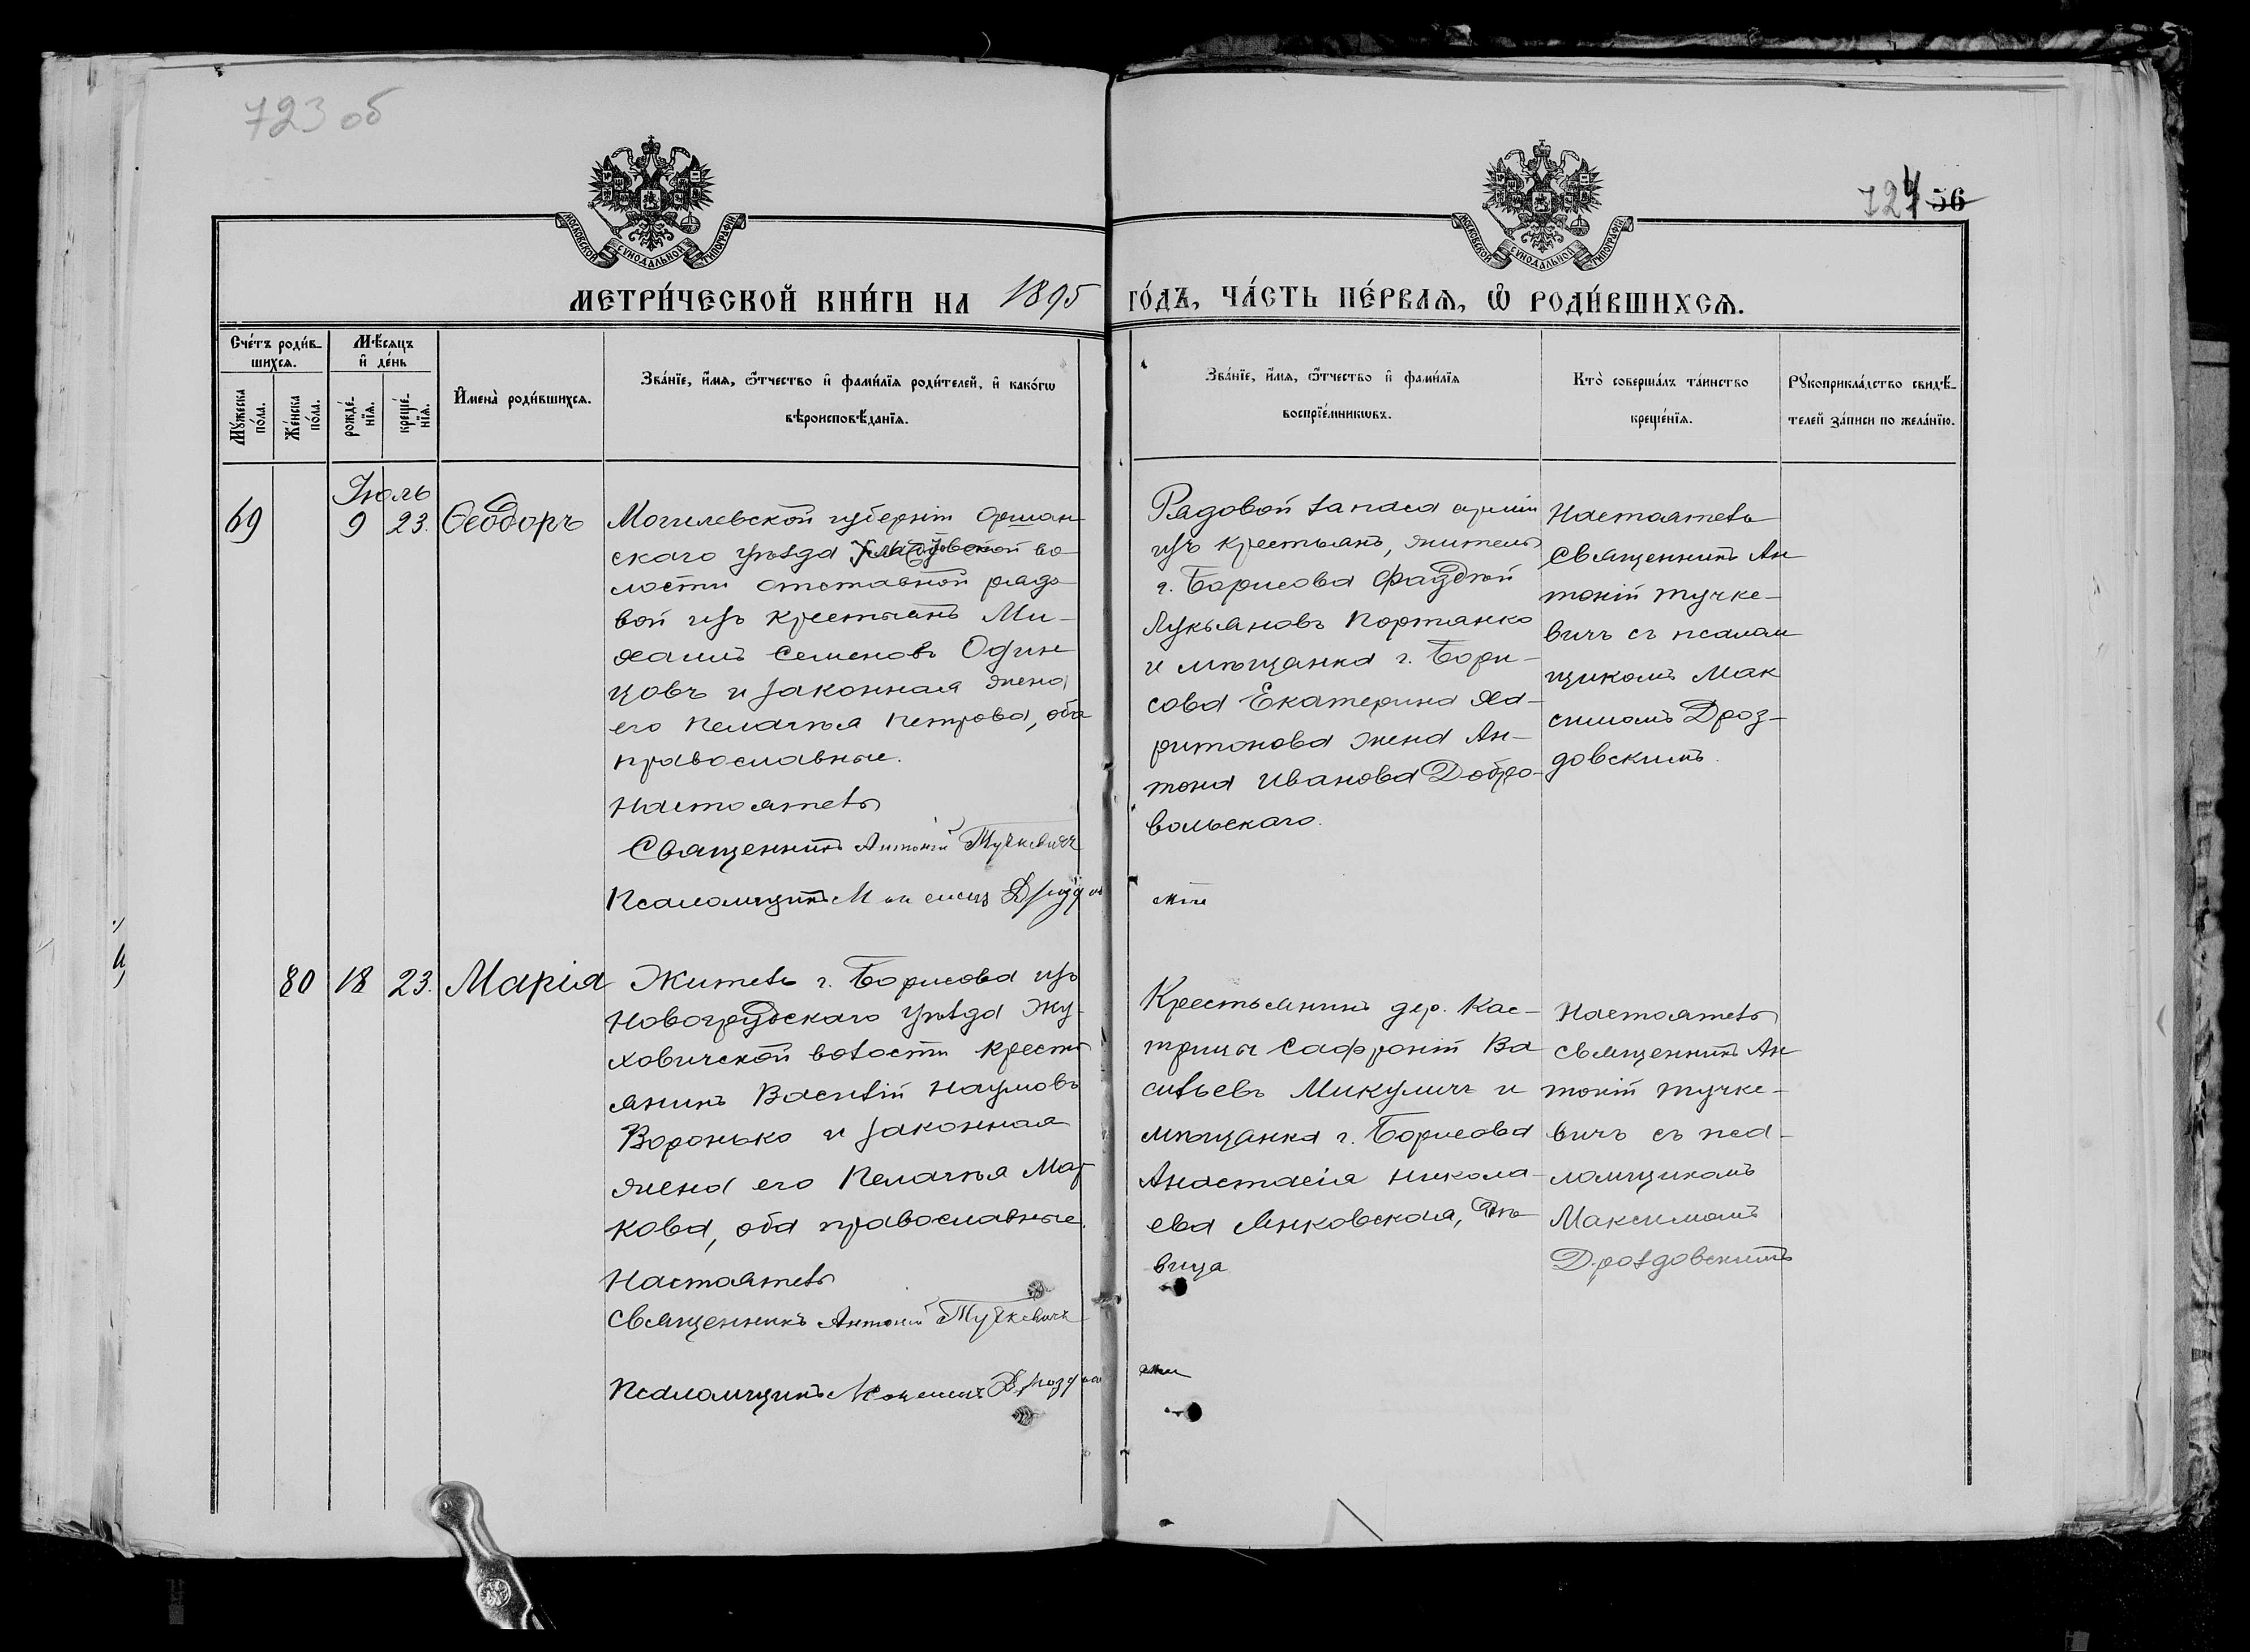 723 об
724 56
МОСКОВСКОЙ СУНОДАЛЬНОЙ ТИПОГРАФІИ
МОСКОВСКОЙ СУНОДАЛЬНОЙ ТИПОГРАФІИ
МЕТРИ́ЧЕСКОЙ КНИ́ГИ НА 1895 ГО́ДЪ, ЧА́СТЬ ПЕ́РВАѦ, Ѡ РОДИ́ВШИХСѦ.
Сче́тъ роди́в-
шихсѧ.
Мꙋжеска по́ла.
Же́нска по́ла.
Мѣ́сѧцъ
и҆ де́нь
рожде́-
нїѧ.
креще́-
нїѧ.
И҆мена̀ роди́вшихсѧ.
Зва́нїе, и҆́мѧ, ѻ҆́тчество и҆ фами́лїѧ роди́телей, и҆ како́гѡ
вѣроисповѣ́данїѧ.
Зва́нїе, и҆́мѧ, ѻ҆́тчество и҆ фами́лїѧ
воспрїе́мникѡвъ.
Кто̀ соверша́лъ та́инство
креще́нїѧ.
Рꙋкоприкла́дство свидѣ́-
телей за́писи по жела́нїю.
Іюль
69 9 23. Ѳеодоръ
Могилевской губерніи Оршан
скаго уѣзда во-
лости отставной рядо
вой изъ крестьянъ Ми-
хаилъ Семеновъ Один
цовъ и законная жена
его Пелагія Петрова, оба
православные.
Настоятель
Священникъ Антоній Тучкевичъ
Псаломщикъ Максимъ Дроздовскій
Рядовой запаса арміи
изъ крестьянъ, житель
г. Борисова Фаддей
Лукьяновъ Портянко
и мѣщанка г. Бори-
сова Екатерина Ха-
ритонова жена Ан-
тона Иванова Добро-
вольскаго.
Настоятель
Священникъ Ан
тоній Тучке-
вичъ съ псалом
щикомъ Мак
симомъ Дроз-
довскимъ.
80 18 23. Марія
Житель г. Борисова изъ
Новогрудскаго уѣзда Жу-
ховичской волости крестья
янинъ Василій Наумовъ
Воронько и законная
жена его Пелагія Мар
кова, оба православные.
Настоятель
Священникъ Антоній Тучкевичъ
Псаломщикъ Максимъ Дроздовскій
Крестьянинъ дер. Кас-
трицы Сафроній Ва
сильевъ Микуличъ и
мѣщанка г. Борисова
Анастасія Никола-
ева Янковская, дѣ-
вица
Настоятель
священникъ Ан
тоній Тучке-
вичъ съ пса-
ломщикомъ
Максимомъ
Дроздовскимъ